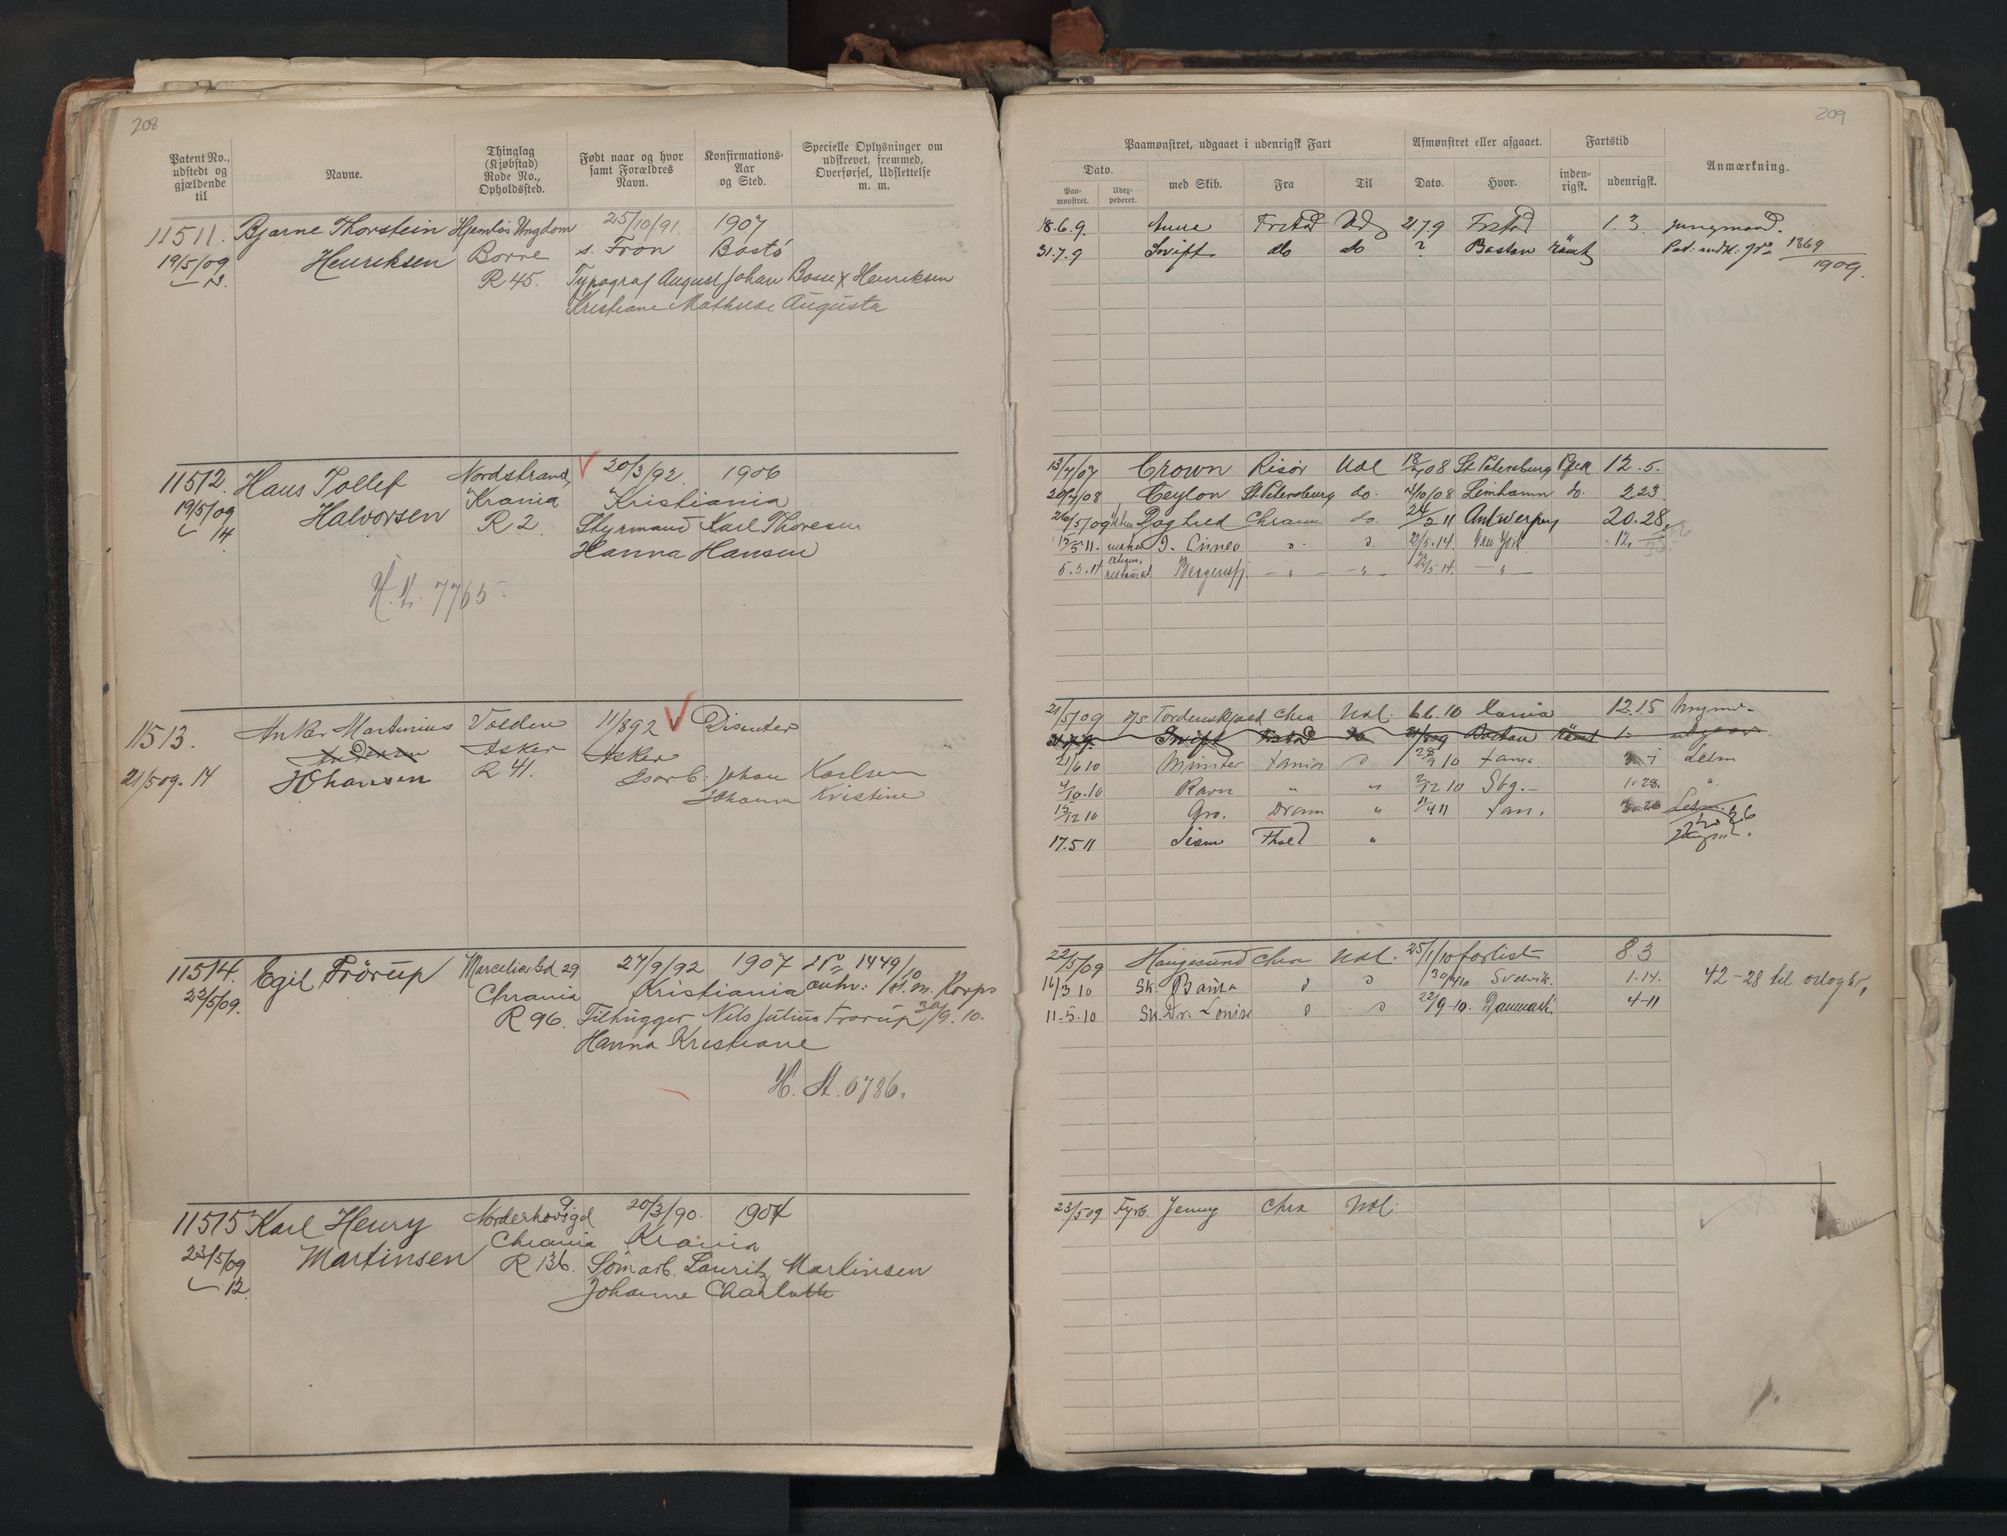 208
Patent No., udstedt og gjældende til
Navne.
Thinglag (Kjøbstad) Rode No., Opholdsted.
Født naar og hvor samt Forældres Navn.
Konfirmations-Aar og Sted.
Specielle Oplysninger om udskrevet, fremmed, Overførsel, Udslettelse m. m.
11511. Bjarne Thorstein Hjemløs Ungdom 25/10/91 1907
19/5/09 Henriksen Borre s. Fron Bastö
12. R 45. Typograf August Johan Bosse x Henriksen
Kristiane Mathilde Augusta
11512. Hans Tollef Nordstrand, 20/3/92. 1906
19/5/09 Halvorsen Krania Kristiania
14. R 2 Styrmand Karl Thoresen
Hanna Hansen
H. L. 7765
11513. Anker Martinius Volden 11/892 Disenter
Asker Asker
21/509. 14 Johansen R 41. Johan Karlsen
Johanne Kristine
11514. Egil Frörup Marcelia Gd 29 27/9/92 1907 No 1449/10
22/5/09. Chrania Kristiania anh: Korps
R 96. Filhugger Nils Julius Frorup 30/9. 10.
Hanna Kristiane
H. St. 6786.
11515 Karl Henry Norderhovgd 20/3/90. 1904
23/5/09 Martinsen Chrania Krania
12. R 136. Sömarb. Lauritz Martinsen
Johanne Charlotte
209
Paamønstret, udgaaet i udenrigsk Fart
Afmønstret eller afgaaet.
Fartstid
Anmærkning.
Dato.
Paa-mønstret.
Udex-pederet.
med Skib.
Fra
Til
Dato.
Hvor.
inden-rigsk.
udenrigsk.
18.6.9. Anna Frstad Udl 21.7.9 Frstad 1. 3. Jungmand.
31.7.9 Swift do do ? Boston römt Pat. indk. Jr 1369/1909.
13/7/07 Crown Risör Udl 18/08 St Petersburg 12. 5.
20/7/08 Ceylon St. Petersburg do. 12/10/08 Limhamn do. 2 23.
26/5/09 Dagfred Chrania do. 24/2 11 Antwerpen 20. 28.
15/5 11. 21/5.14. New York 12.
5.5.14 Bergensfj. 22/5.14.
21/5/09 D/S Tordenskjold Chra Udl. 6.6.10 Xania 12.15
31.7.9. Swift Frstad do Boston römt
21/6 10 Münster Xania 28/9 10 Xania Letm
4/10.10 Ravn " " 2/12 10 Sbg. 1. 28. "
15/12 10 Gro. Dram " 11/4 11 Xan. Letm.
17.5 11 Siam Fhald "
22/5/09 Haugesund Chra Udl. 25/1/10 forlist 8 3
16/3 10 Sk. 30/4/10 Svelvik. 1.14. 42 - 28 til orlogstj.
11.5.10 Sk. Dr. Louise 22/9-10. Danmark 4-11
23/5 09 Fyrb. Jenny Chra Udl.